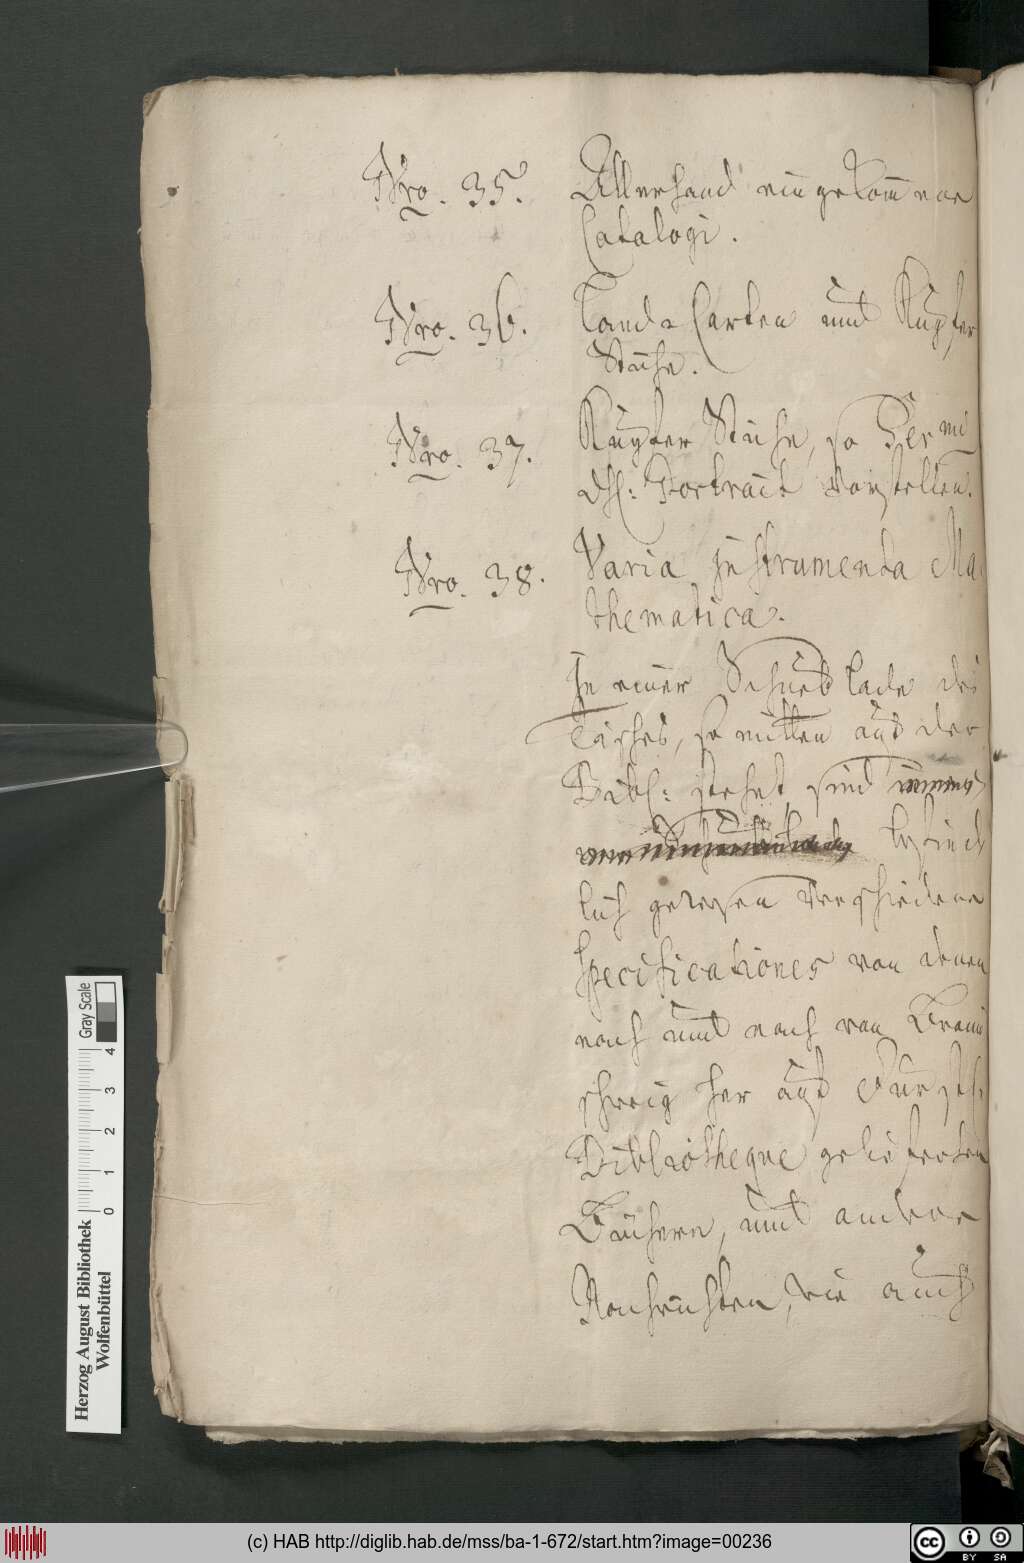 Nro. 35. Allerhand eingekom̅ene
Catalogi.
Nro. 36. Land-Carten und Kupfer
Stiche.
Nro. 37. Kupfer Stiche, so
dh: Portrait vorstellen.
Nro. 38. Varia Instrumenta Ma
thematica.
In einer Schueb Lade des
Tisches, so mitten auf der
Bibl: stehet, sind
befind
lich gewesen verschiedene
Specificationes von denen
nach und nach von Braun
schweig her auf Fürstl.
Bibliotheque gelieferten
Büchern, und andere
Nachrichten, wie auch
Herzog August Bibliothek
Wolfenbüttel
0 1 2 3 4
Gray Scale
(c) HAB http://diglib.hab.de/mss/ba-1-672/start.htm?image=00236
cc BY SA